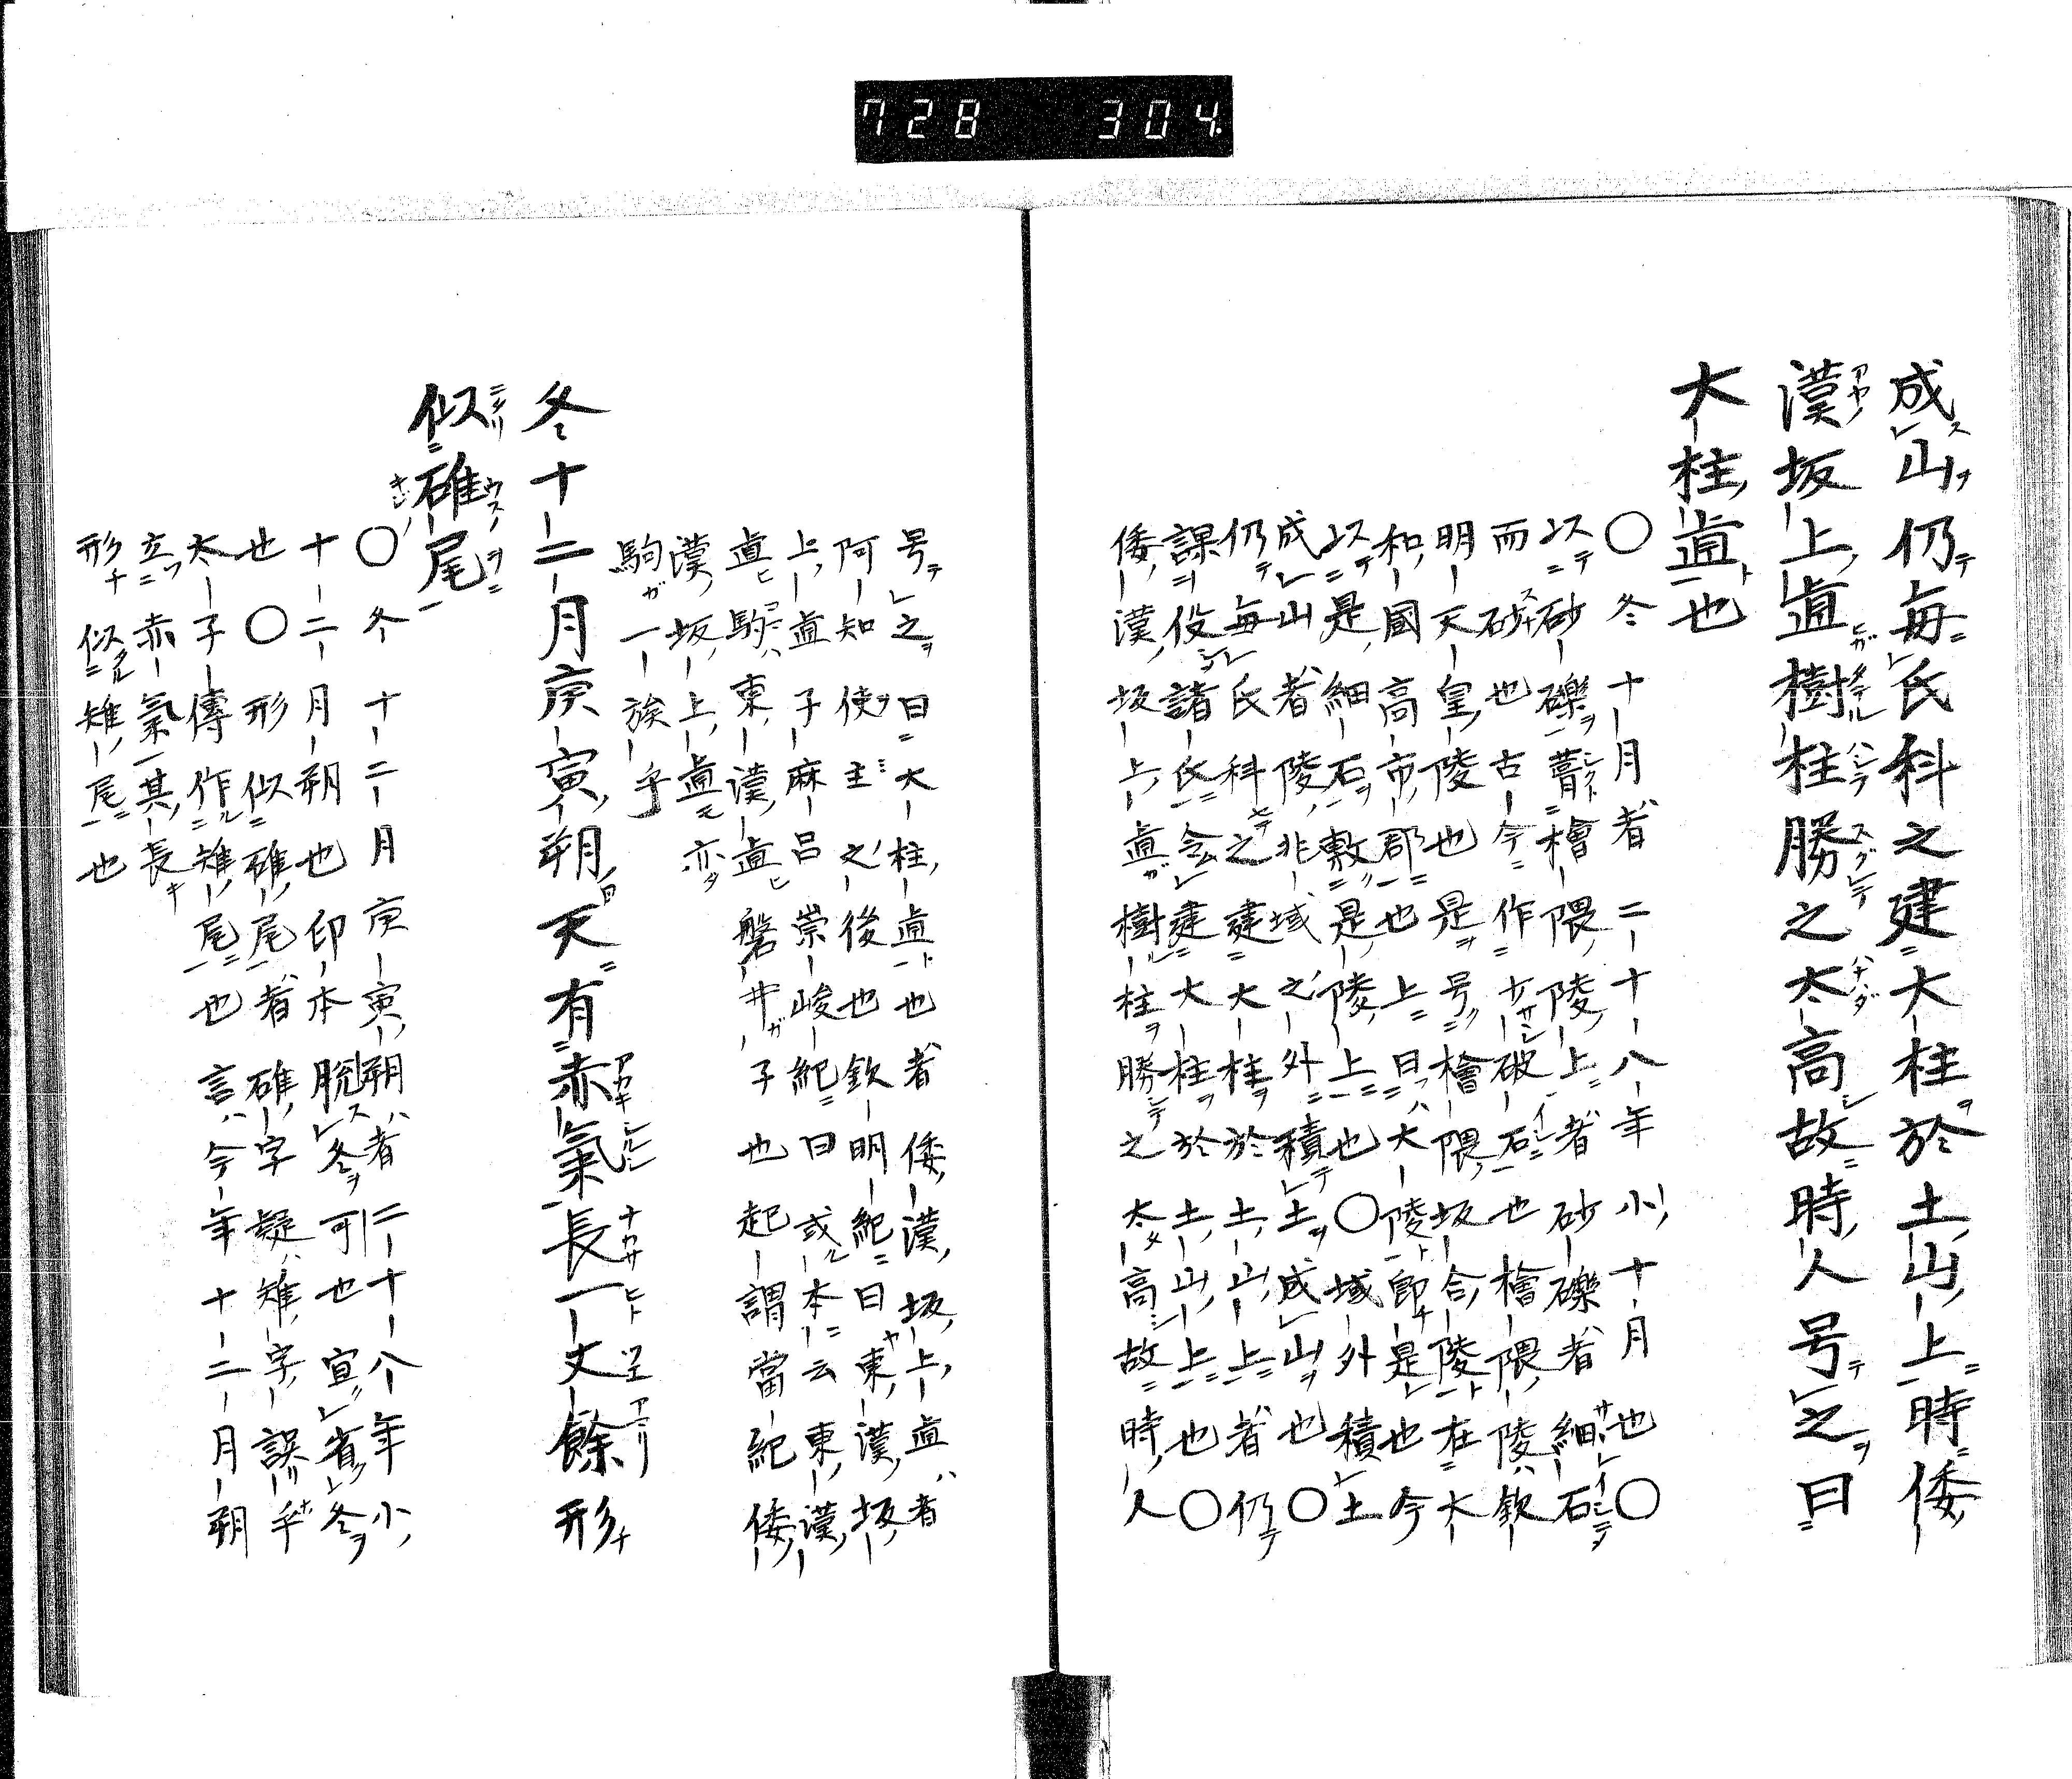 728 304
成山仍毎氏科之建大柱於土山上時倭
漢坂上直樹柱勝之太高故時人号之曰
大柱直也
〇冬十月者二十八年小十月也〇
以砂礫葺檜隈陵上者砂礫者細石
而砂也古今作破石也檜隈陵欽
明天皇陵也是号檜隈坂合陵在大
和國高市郡也上曰大陵即是也今
以是細石敷是陵上也〇域外積土
成山者陵非域之外積土成山也〇
仍毎氏科之建大柱於土山上者仍
課役諸氏令建大柱於土山上也〇
倭漢坂上直樹柱勝之太高故時人
号之曰大柱直也者倭漢坂上直者
阿知使主之後也欽明紀曰東漢坂
上直子麻呂崇峻紀曰或本云東漢
直駒東漢直磐井子也起謂當紀倭
漢坂上直亦
駒一族乎
冬十二月庚寅朔天有赤氣長一丈餘形
似碓尾
〇冬十二月庚寅朔者二十八年小
十二月朔也印本脱冬可也宣省冬
也〇形似碓尾者碓字疑雉字誤乎
太子傳作雉尾也言今年十二月朔
立赤氣其長
形似雉尾也